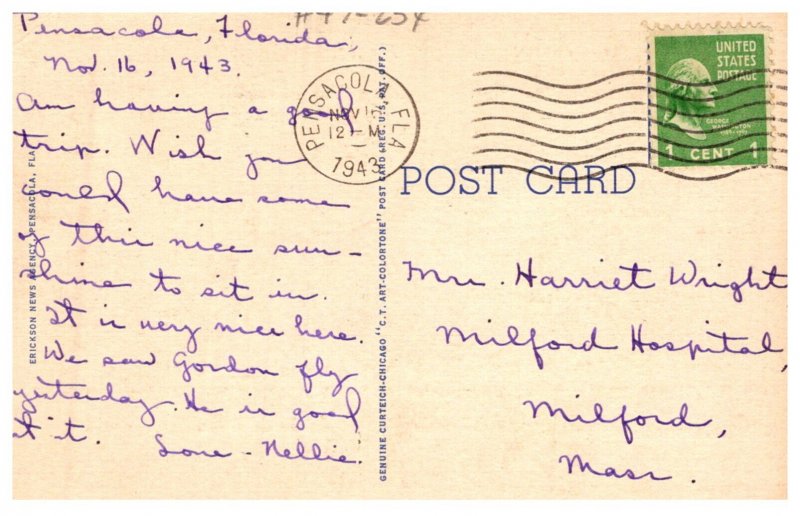 #47-654
Pensacola, Florida,
Nov. 16, 1943.
Am having a good
trip. Wish you
could have some
of this nice sun-
shine to sit in.
It is very nice here.
We saw Gordon fly
yesterday. He is good
at it. Love - Nellie.
ERICKSON NEWS AGENCY, PENSACOLA, FLA.
GENUINE CURTEICH-CHICAGO "C.T. ART-COLORTONE" POST CARD (REG. U.S. PAT. OFF.)
PENSACOLA FLA
NOV 16
12 - M
1943
UNITED
STATES
POSTAGE
GEORGE
WASHINGTON
1 CENT 1
POST CARD
Mrs. Harriet Wright
Milford Hospital,
Milford,
Mass.